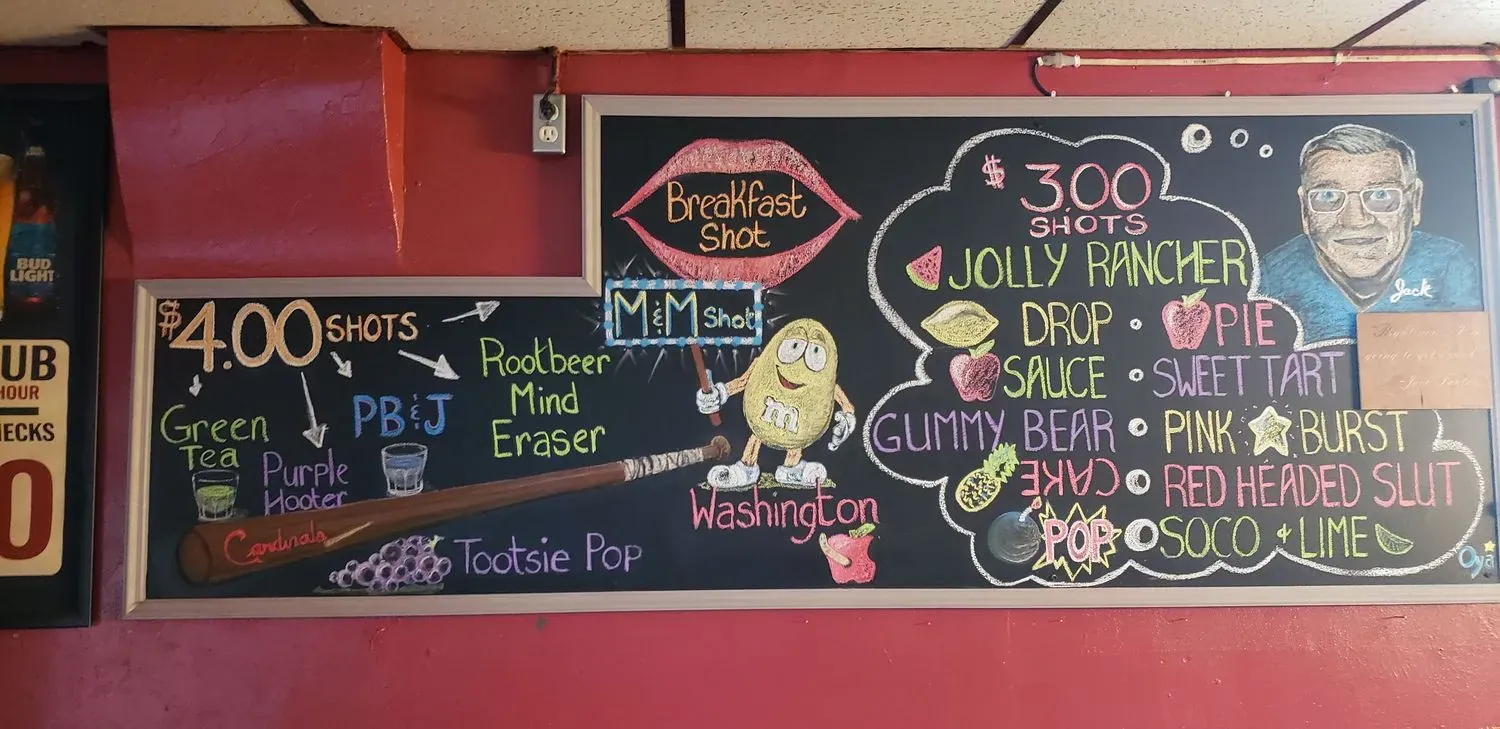 BUD
LIGHT
UB
HOUR
HECKS
0
$4.00 SHOTS
Green
Tea
Purple
Hooter
PB&J
Rootbeer
Mind
Eraser
Cardinals
Tootsie Pop
Breakfast
Shot
M&M Shot
m
Washington
$3.00
SHOTS
JOLLY RANCHER
DROP PIE
SAUCE SWEET TART
GUMMY BEAR PINK BURST
CAKE RED HEADED SLUT
POP SOCO & LIME
Jack
Oya